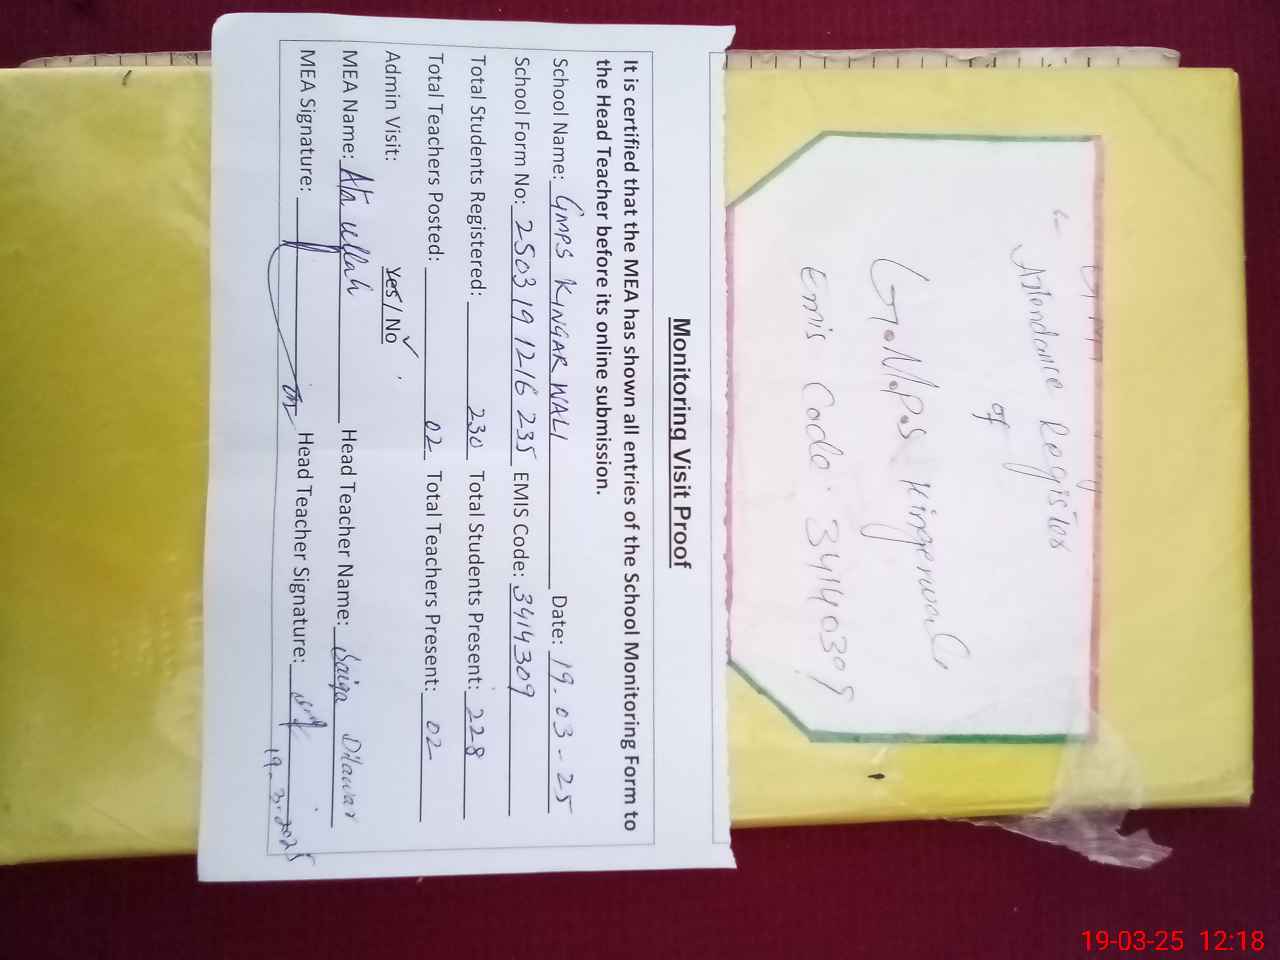 Attendance Register
of
G.M.P.S Kingerwali
Emis Code. 3414309
Monitoring Visit Proof
It is certified that the MEA has shown all entries of the School Monitoring Form to
the Head Teacher before its online submission.
School Name: GMPS KINGAR WALI Date: 19.03-25
School Form No: 2503 19 1216 235 EMIS Code: 3414309
Total Students Registered: 230 Total Students Present: 228
Total Teachers Posted: 02 Total Teachers Present: 02
Admin Visit: Yes / No ✓
MEA Name: Atta ullah Head Teacher Name: Saiqa Dilawar
MEA Signature: Head Teacher Signature:
19.3.2025
19-03-25 12:18